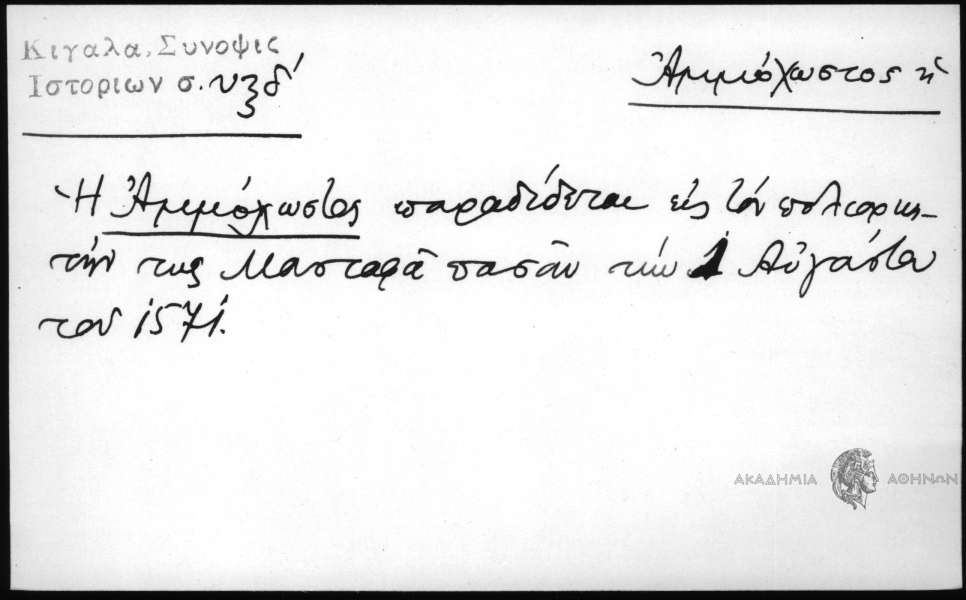 Κιγαλα, Συνοψις
Ιστοριων σ. υξδ΄
Ἀμμόχωστος ἡ
Ἡ Ἀμμόχωστος παραδίδεται εἰς τὸν πολιορκη-
τήν της Μουσταφᾶ πασᾶν τὴν 1 Αὐγούστου
του 1571.
ΑΚΑΔΗΜΙΑ ΑΘΗΝΩΝ